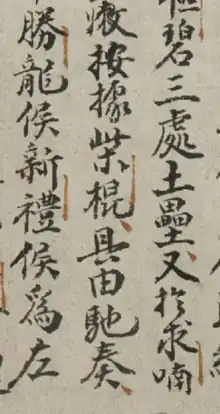 碧三處土壘又於求喃
按據柴棍具由馳奏
勝龍侯新禮侯爲左